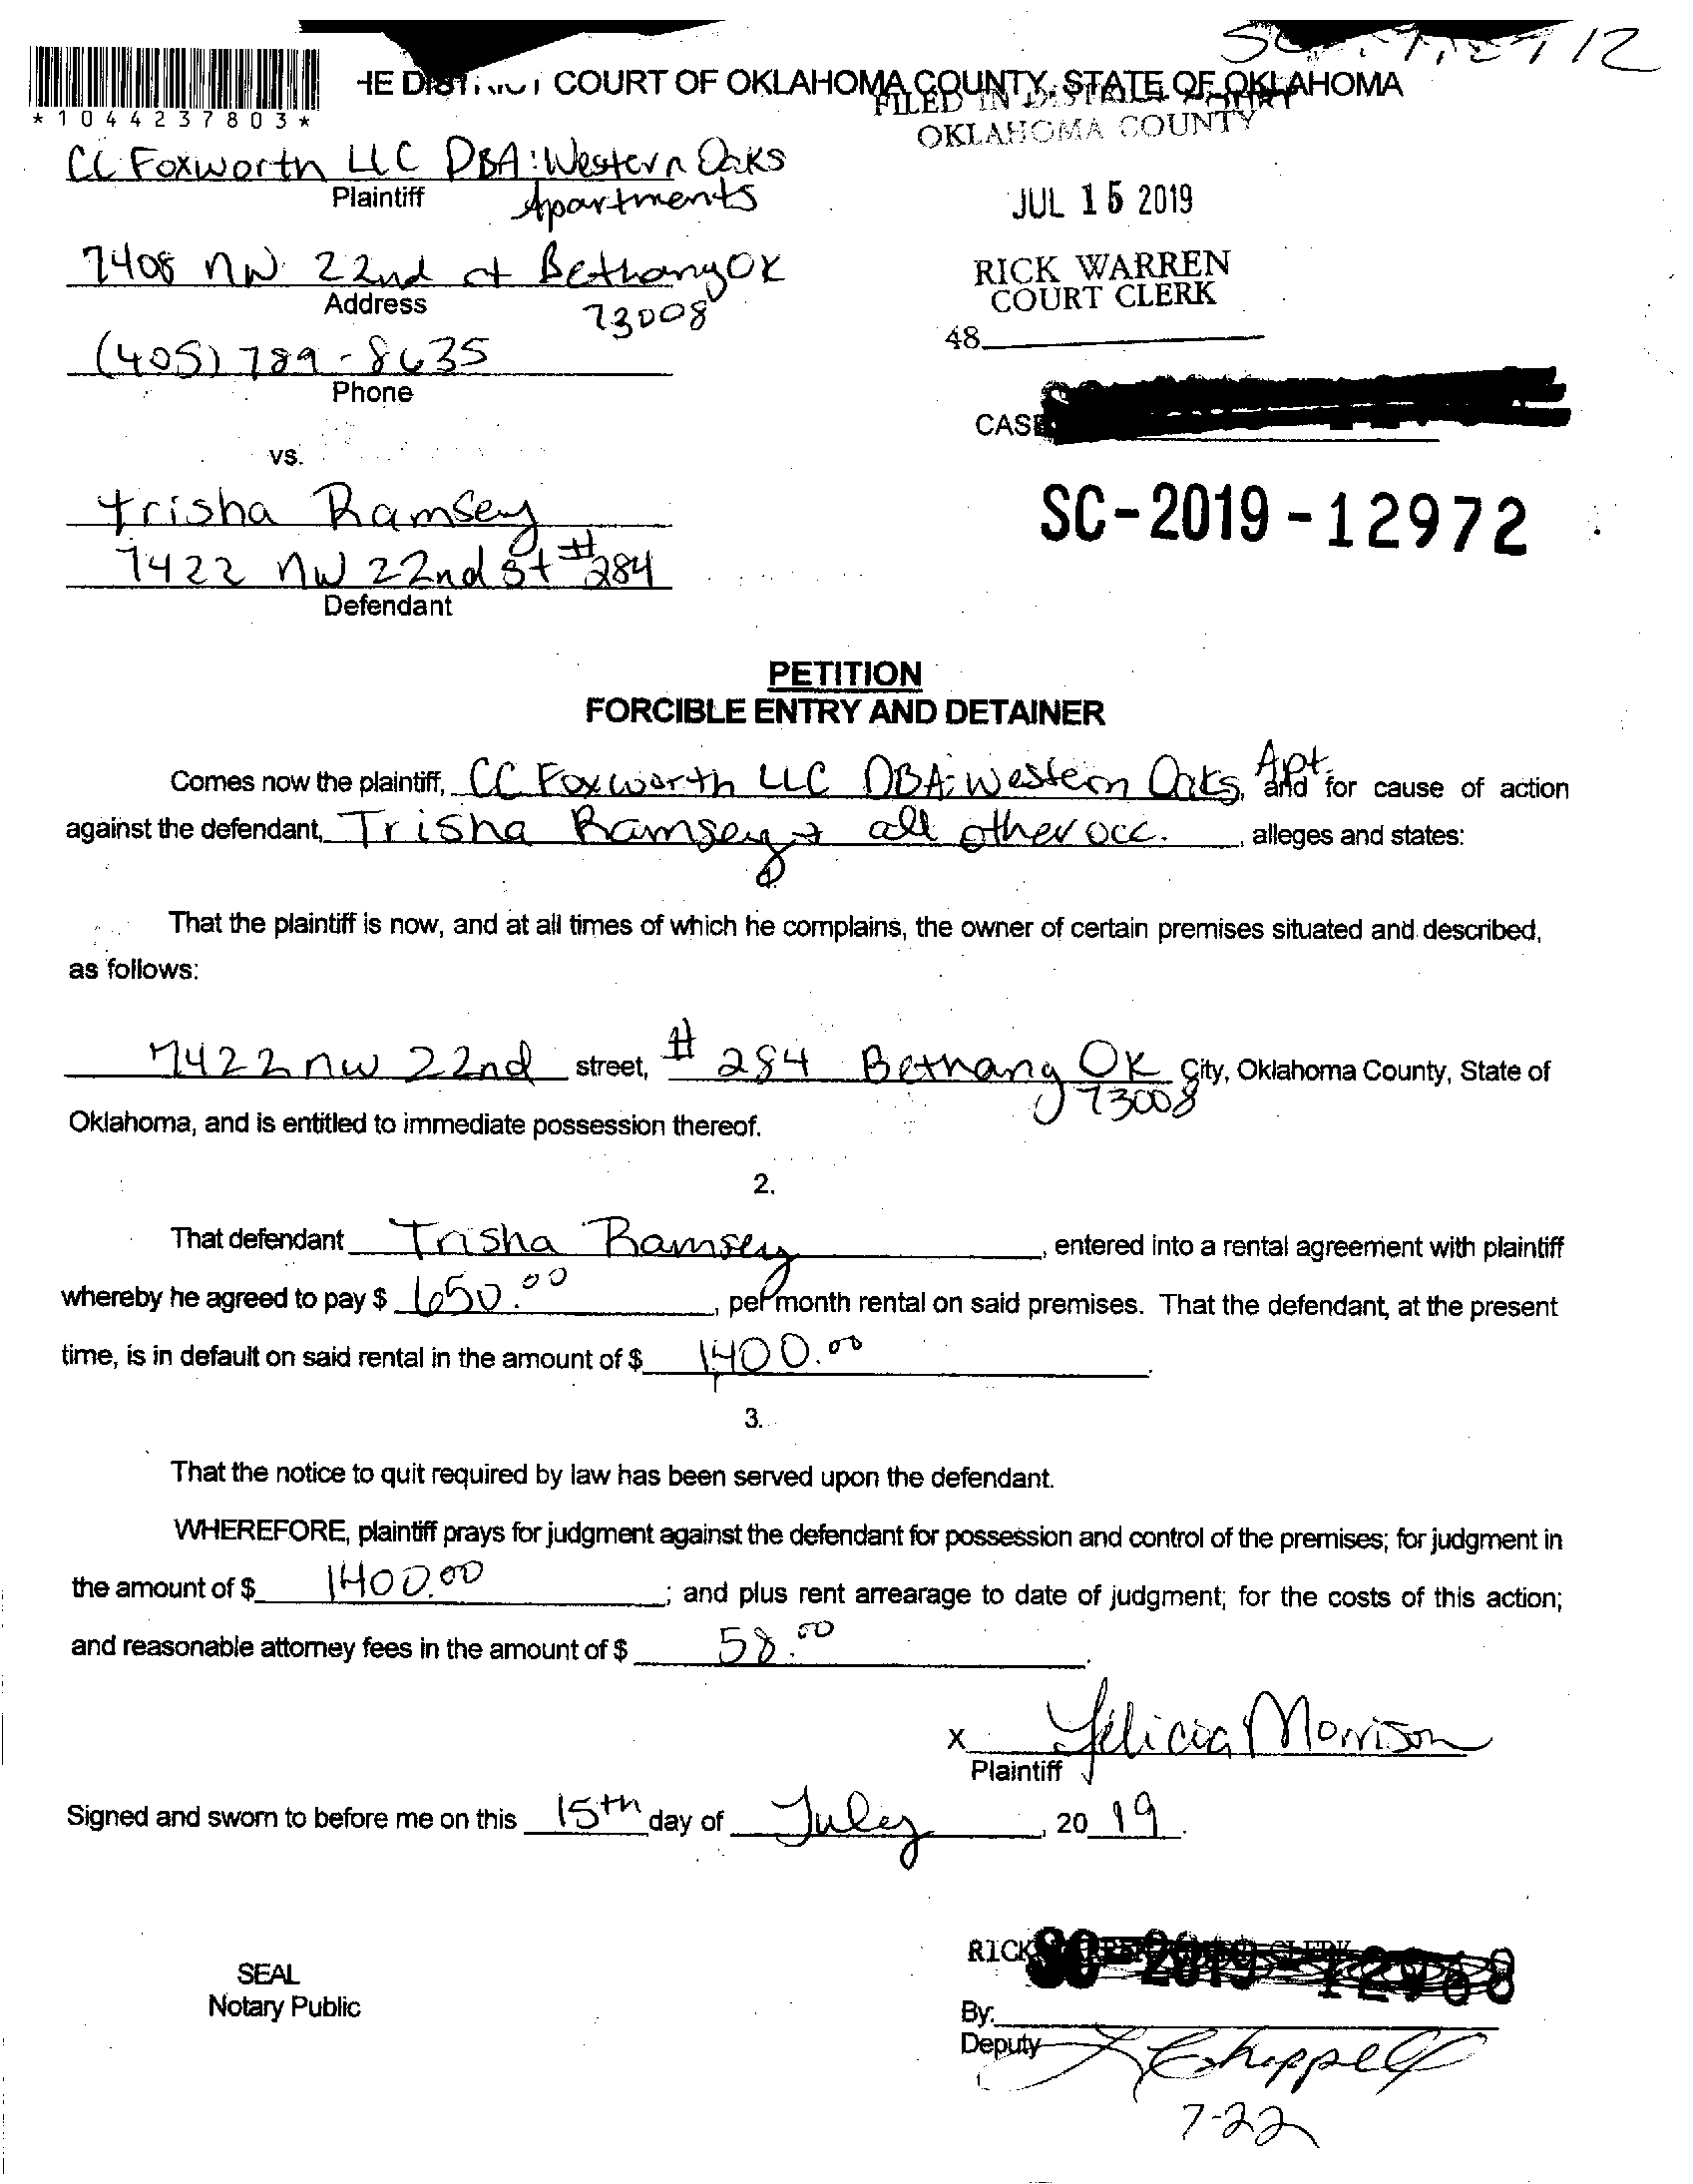 *1044237803*
HE DISTRICT COURT OF OKLAHOMA COUNTY, STATE OF OKLAHOMA
FILED IN DISTRICT COURT
OKLAHOMA COUNTY
JUL 15 2019
RICK WARREN
COURT CLERK
48
CC Foxworth LLC DBA: Western Oaks
Plaintiff
Apartments
7408 NW 22nd st Bethany OK
Address
73008
(405) 789-8635
Phone
CASE
vs.
SC-2019-12972
Trisha Ramsey
7422 NW 22nd St #284
Defendant
PETITION
FORCIBLE ENTRY AND DETAINER
Comes now the plaintiff, CC Foxworth LLC DBA: Western Oaks, Apt. and for cause of action
against the defendant, Trisha Ramsey + all other occ. , alleges and states:
That the plaintiff is now, and at all times of which he complains, the owner of certain premises situated and described,
as follows:
7422 nw 22nd street, # 284 Bethany OK City, Oklahoma County, State of
73008
Oklahoma, and is entitled to immediate possession thereof.
2.
That defendant Trisha Ramsey , entered into a rental agreement with plaintiff
whereby he agreed to pay $ 650.00 , per month rental on said premises. That the defendant, at the present
time, is in default on said rental in the amount of $ 1,400.00 .
3.
That the notice to quit required by law has been served upon the defendant.
WHEREFORE, plaintiff prays for judgment against the defendant for possession and control of the premises; for judgment in
the amount of $ 1400.00 ; and plus rent arrearage to date of judgment; for the costs of this action;
and reasonable attorney fees in the amount of $ 58.00 .
X Felicia Morrison
Plaintiff
Signed and sworn to before me on this 15th day of July , 20 19 .
RICK
SC-2019-12968
SEAL
Notary Public
By:
Deputy Chappell
7-22